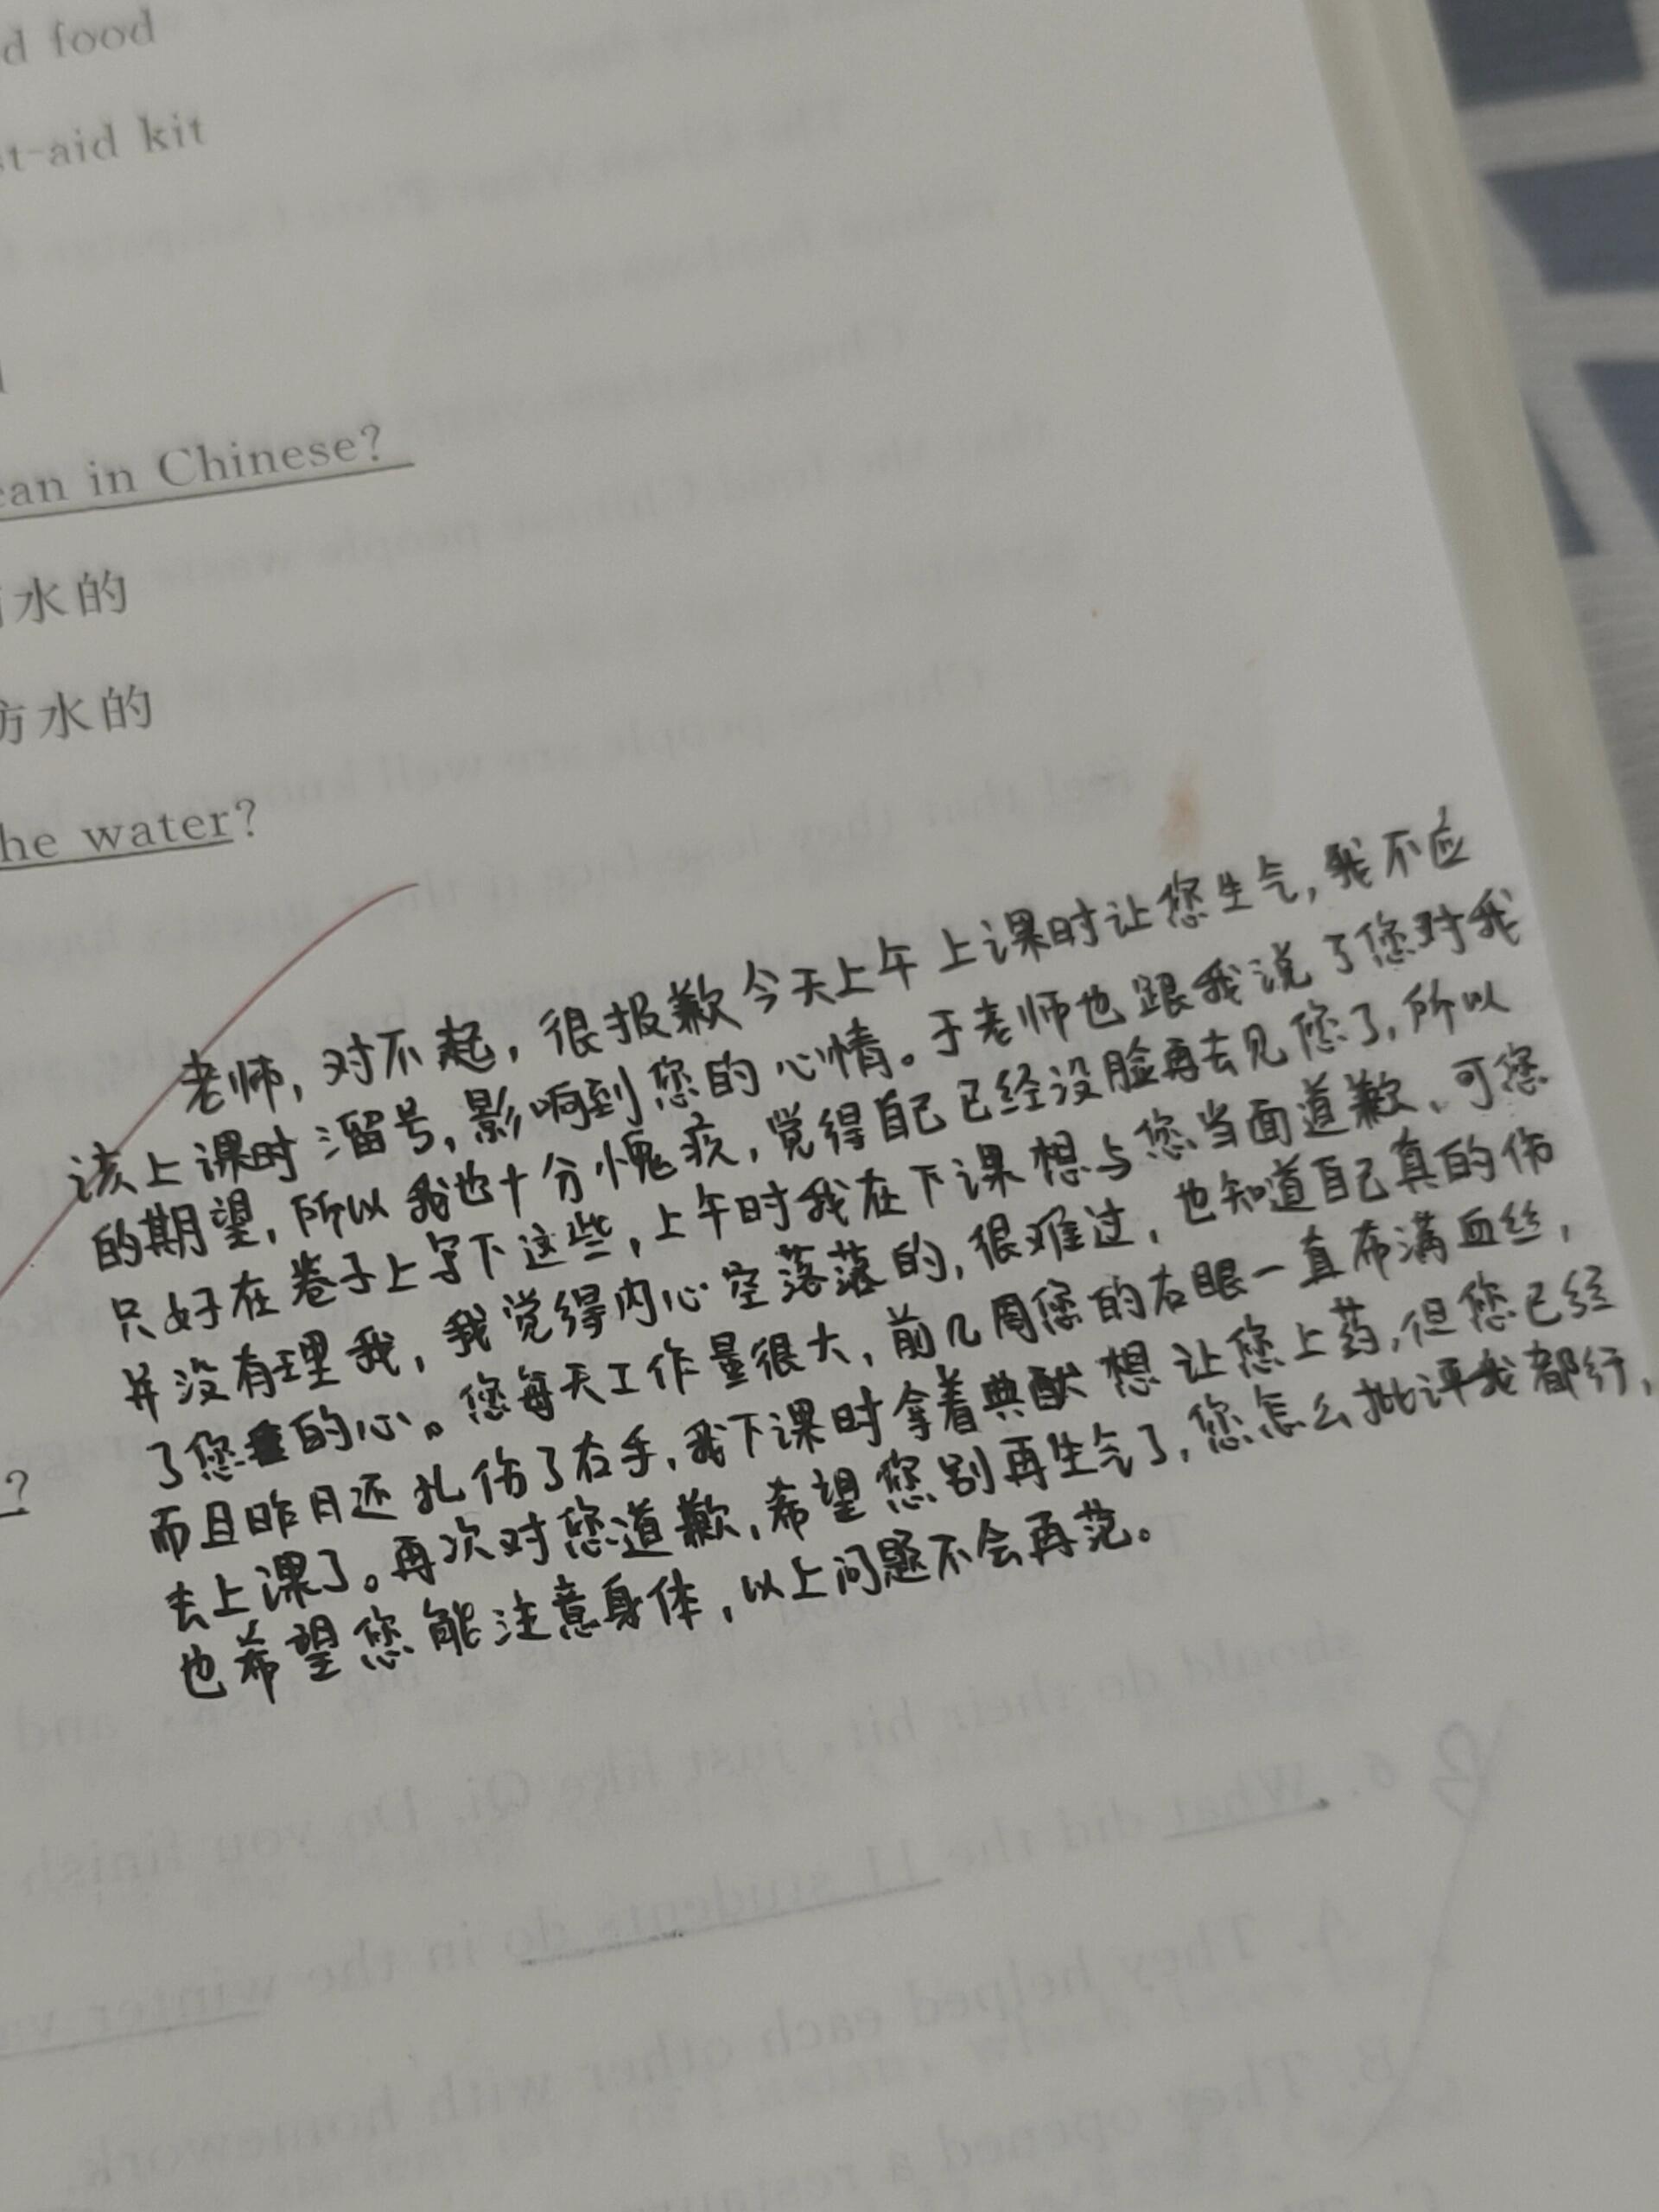 d food
st-aid kit
ean in Chinese?
水的
防水的
he water?
老师，对不起，很报歉今天上午上课时让您生气，我不应
该上课时溜号，影响到您的心情。于老师也跟我说了您对我
的期望，所以我也十分愧疚，觉得自己已经没脸再去见您了，所以
只好在卷子上写下这些，上午时我在下课想与您当面道歉、可您
并没有理我，我觉得内心空落落的，很难过，也知道自己真的伤
了您的心。您每天工作量很大，前几周您的右眼一直布满血丝，
而且昨日还扎伤了右手，我下课时拿着典酞想让您上药，但您已经
去上课了。再次对您道歉，希望您别再生气了，您怎么批评我都行，
也希望您能注意身体，以上问题不会再范。
?